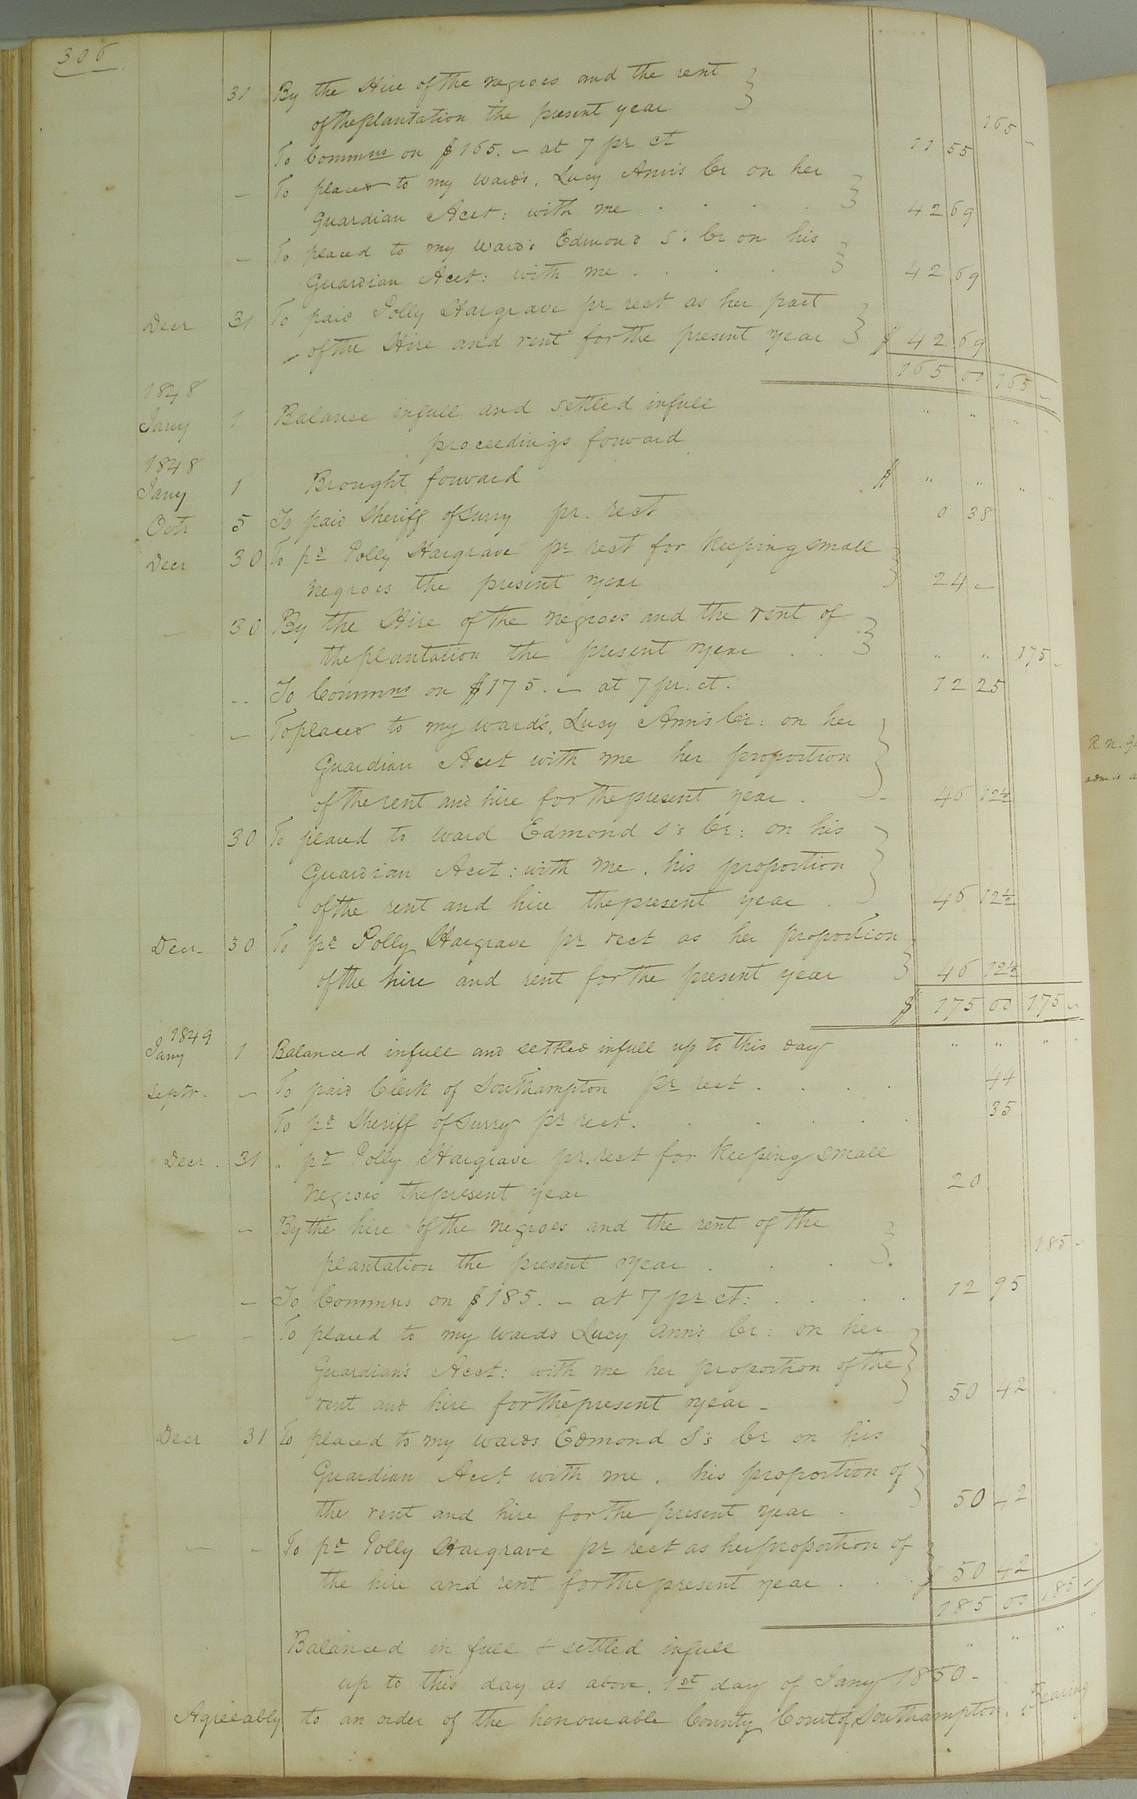 306
31 By the Hire of the negroes and the rent
of the plantation the present year 165 –
To Commns on $165. – at 7 pr ct 11 55
– To placed to my ward's, Lucy Ann's Cr on her
Guardian Acct: with me . . . . 42 69
– To placed to my ward's Edmond S's Cr on his
Guardian Acct: with me . . . . 42 69
Decr 31 To paid Polly Hargrave pr rect as her part
– of the Hire and rent for the present year $ 42 69
165 00 165 –
1848
Jany 1 Balance infull and settled infull " " " "
proceedings forward
1848
Jany 1 Brought forward $ " " " "
Octr 5 To paid Sheriff of Surry pr. rect 0 38
Decr 30 To pd Polly Hargrave pr rect for Keeping small
negroes the present year 24 –
– 30 By the Hire of the negroes and the rent of
the plantation the present year . . " " 175 –
-- To Commns on $175. – at 7 pr. ct. 12 25
– To placed to my ward's, Lucy Ann's Cr: on her
Guardian Acct with me her proportion
of the rent and hire for the present year . - 46 12½
30 To placed to ward Edmond S's Cr: on his
Guardian Acct: with me. his proportion
of the rent and hire the present year . 46 12½
Decr- 30 To pd Polly Hargrave pr rect as her proportion
of the hire and rent for the present year 46 12½
$ 175 00 175 –
1849
Jany 1 Balanced infull and settled infull up to this day " " " "
Septr. – To paid Clerk of Southampton pr rect . . . . 44
To pd Sheriff of Surry pr rect. . . . . . 35
Decr. 31 " pd Polly Hargrave pr. rect for Keeping small
negroes the present year 20
– By the hire of the negroes and the rent of the
plantation the present year . . . 185 –
– To Commns on $185. – at 7 pr ct: . . . . 12 95
– – To placed to my wards Lucy Ann's Cr: on her
Guardian's Acct: with me her proportion of the
rent and hire for the present year – 50 42
Decr 31 To placed to my wards Edmond S's Cr on his
Guardian Acct with me. his proportion of
the rent and hire for the present year . 50 42
– – To pd Polly Hargrave pr rect as her proportion of
the hire and rent for the present year . . . $ 50 42
185 00 185 –
Balanced in full & settled infull " " "
up to this day as above. 1st day of Jany 1850 –
Agreeably to an order of the honourable County Court of Southampton, Bearing
R. N.